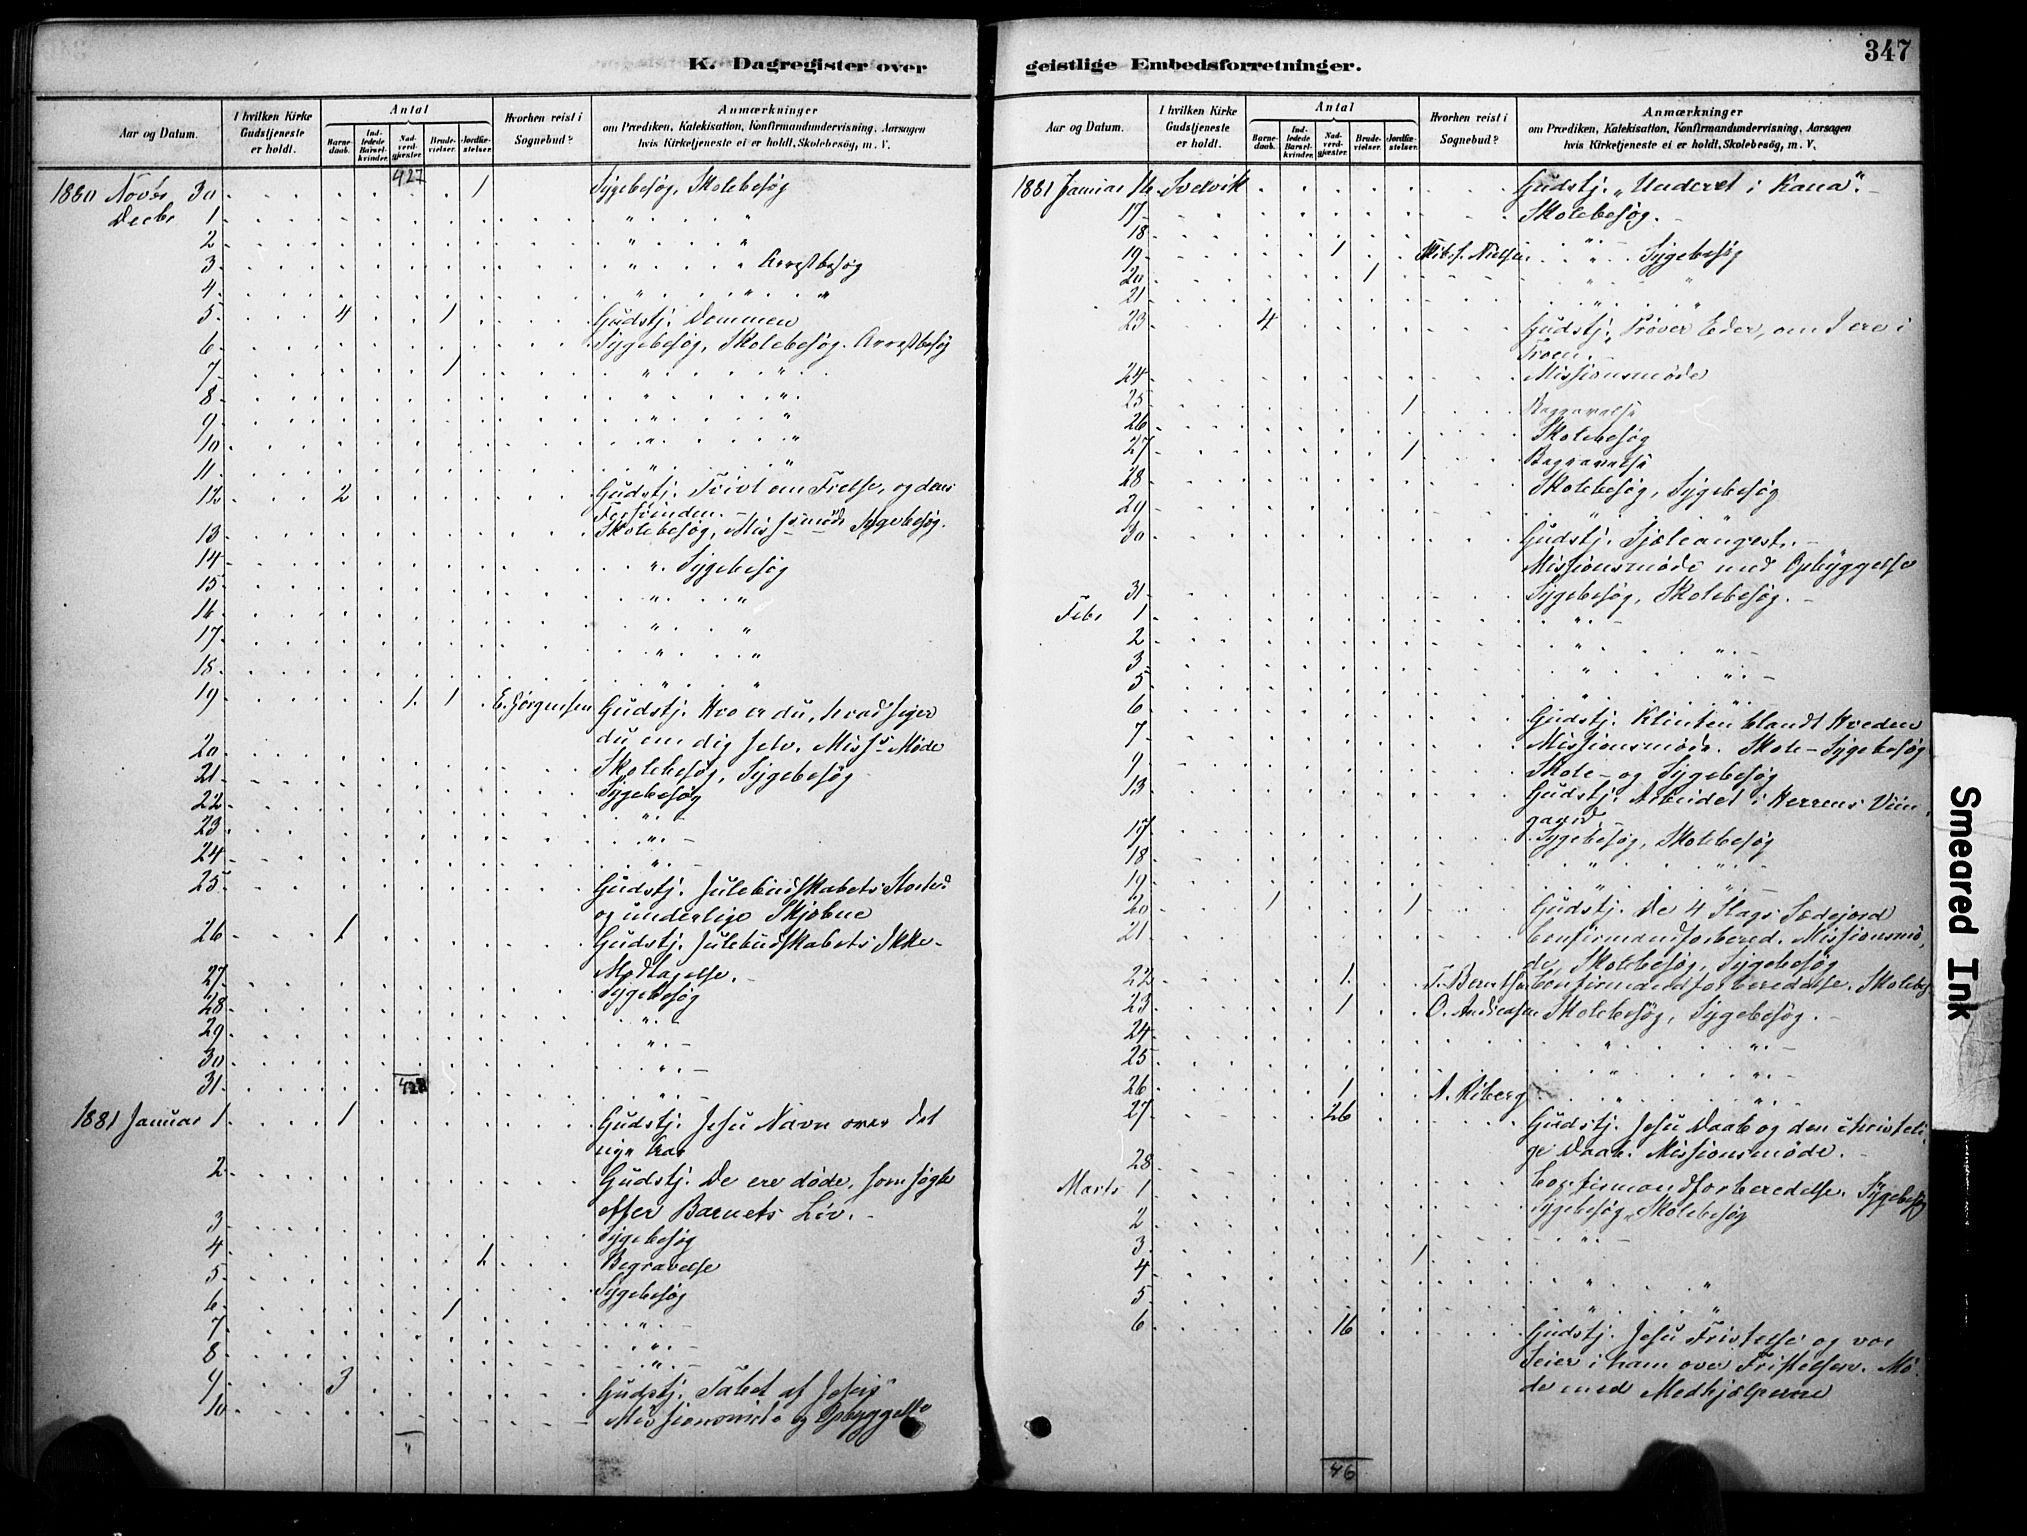 347
K. Dagregister over
Aar og Datum.
I hvilken Kirke Gudstjeneste er holdt.
Antal
Barnedaab.
Indledede Barselkvinder.
Nadverdgjæster.
Brudevielser.
Jordfæstelser.
Hvorhen reist i Sognebud?
Anmærkninger
om Prædiken, Katekisation, Konfirmandundervisning, Aarsagen
hvis Kirketjeneste ei er holdt, Skolebesög, m. V.
427
1880 Novbr 30 1 Sygebesøg, Skolebesøg
Decbr 1 " "
2 " "
3 " " Arrestbesøg
4 " " "
5 4 1 Gudstj. Dommen
6 Sygebesøg, Skolebesøg. Arrestbesøg
7 1 " "
8 " "
9 " "
10 " "
11 " "
12 2 Gudstj. Tvivl om Frelse, og dens
13 Skolebesøg, Missmøde Sygebesøg.
14 " Sygebesøg
15 " "
16 " "
17 " "
18 " "
19 1 1 E. Jørgensen Gudstj. Hvo er du, hvad siger
du om dig selv. Misss Møde
20 Skolebesøg, Sygebesøg
21 Sygebesøg
22 "
23 "
24 "
25 Gudstj. Julebudskabets
og underlige Skjæbne
26 1 Gudstj. Julebudskabets Ikke-
Modtagelse.
27 Sygebesøg
28 "
29 "
30 "
31 428 "
1881 Januar 1 1 Gudstj. Jesu Navn over det
nye Aar
2 Gudstj. De ere døde, som søgte
efter Barnets Liv.
3 Sygebesøg
4 1 Begravelse
5 Sygebesøg
6 1
7 "
8 "
9 3 Gudstj. Tabet af Jesus
10 Missionsmøde og Opbyggelse
geistlige Embedsforretninger.
Aar og Datum.
I hvilken Kirke Gudstjeneste er holdt.
Antal
Barnedaab.
Indledede Barselkvinder.
Nadverdgjæster.
Brudevielser.
Jordfæstelser.
Hvorhen reist i Sognebud?
Anmærkninger
om Prædiken, Katekisation, Konfirmandundervisning, Aarsagen
hvis Kirketjeneste ei er holdt, Skolebesög, m. V.
1881 Januar 16 Svelvik Gudstj. "Underet i Kana".
17 Skolebesøg.
18 "
19 1 Nielsen " Sygebesøg
20 1 " "
21 " "
23 4 Gudstj. "Prøver Eder, om I ere i
Troen.
24 Missionsmøde
25 1 Begravelse
26 Skolebesøg
27 1 Begravelse
28 Skolebesøg, Sygebesøg
29 " "
30 Gudstj. Sjæleangest.
Missionsmøde med Opbyggelse
31 Sygebesøg, Skolebesøg.
Febr 1 "
2 " "
3 " "
5 " "
6 Gudstj. Klinten blandt Hveden
7 Missionsmøde. Skole-Sygebesøg
9 Skole- og Sygebesøg
13 Gudstj. Arbeidet i Herrens Viin-
gaard
17 Sygebesøg, Skolebesøg
18 " "
19 " "
20 1 1 Gudstj. De 4 Slags Sædejord
21 Confirmandforbered. Missionsmø-
de, Skolebesøg, Sygebesøg
22 1 T. Berntsen Confirmandforberedelse. Skolebes
23 1 O. Andreasen Skolebesøg, Sygebesøg.
24 " "
25 " "
26 1 A. Kiberg " "
27 26 Gudstj. Jesu Daab og den christeli-
ge Daab. Missionsmøde.
28 Confirmandforberedelse. Sygebesøg
Marts 1 Sygebesøg, Skolebesøg
2 "
3 1
4 " "
5 " "
6 16 Gudstj. Jesu Fristelse og vor
Seier i ham over Fristelsen. Mø-
de med Medhjælperne
46
Smeared Ink